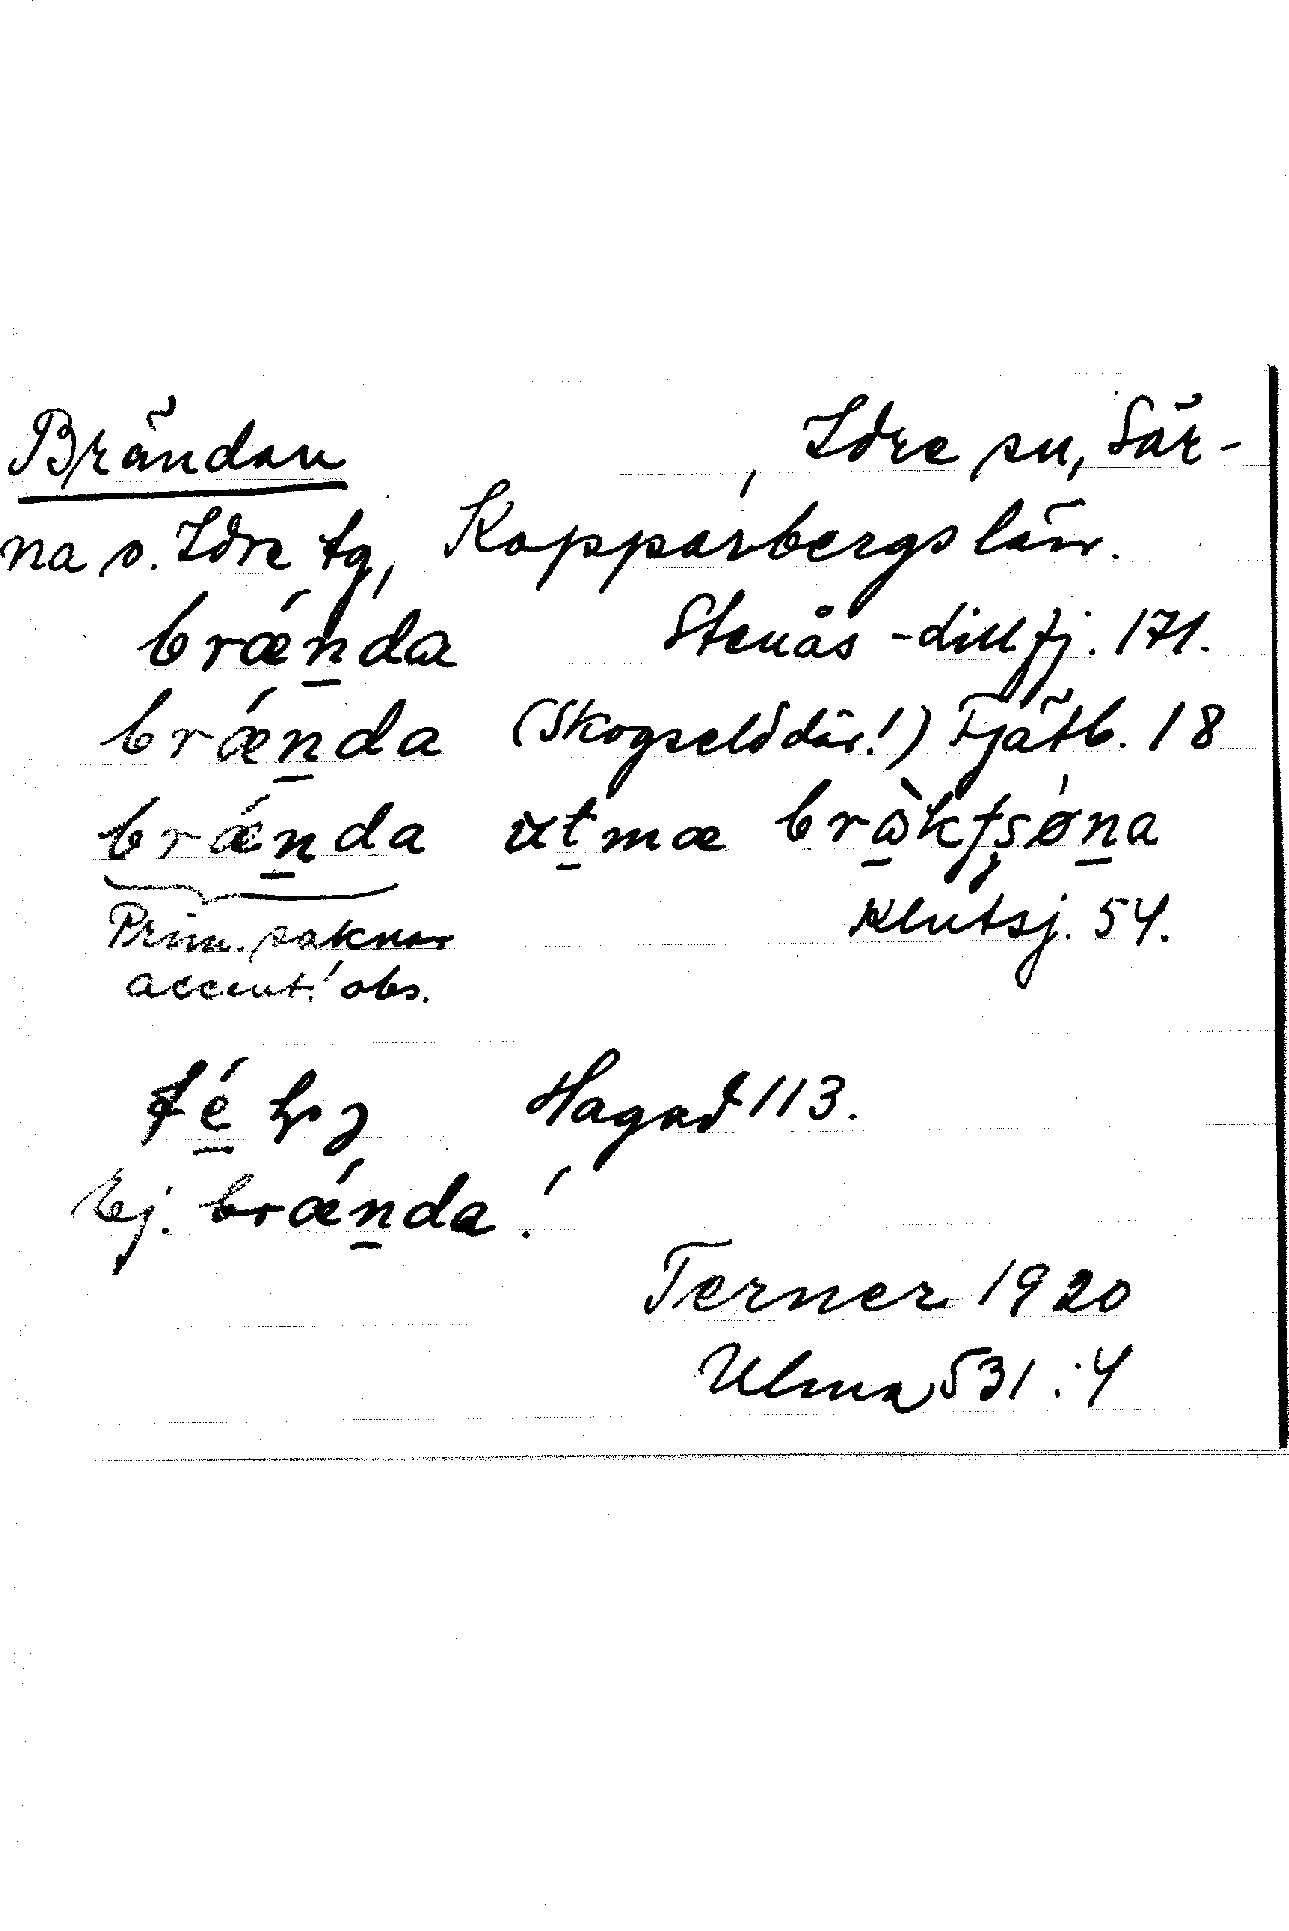 Brändan , Idre sn, Sär-
na o. Idre tg, Kopparbergs län.
brǽn̲da Stenås - dillfj. 171.
brǽn̲da (Skogseld där!) Fjätb. 18
brǽn̲da ut̲mæ Klutsj. 54.
Prim. saknar
accent! obs.
Hagad 113.
Ej. brǽn̲da!
Terner 1920
Ulma 531:4